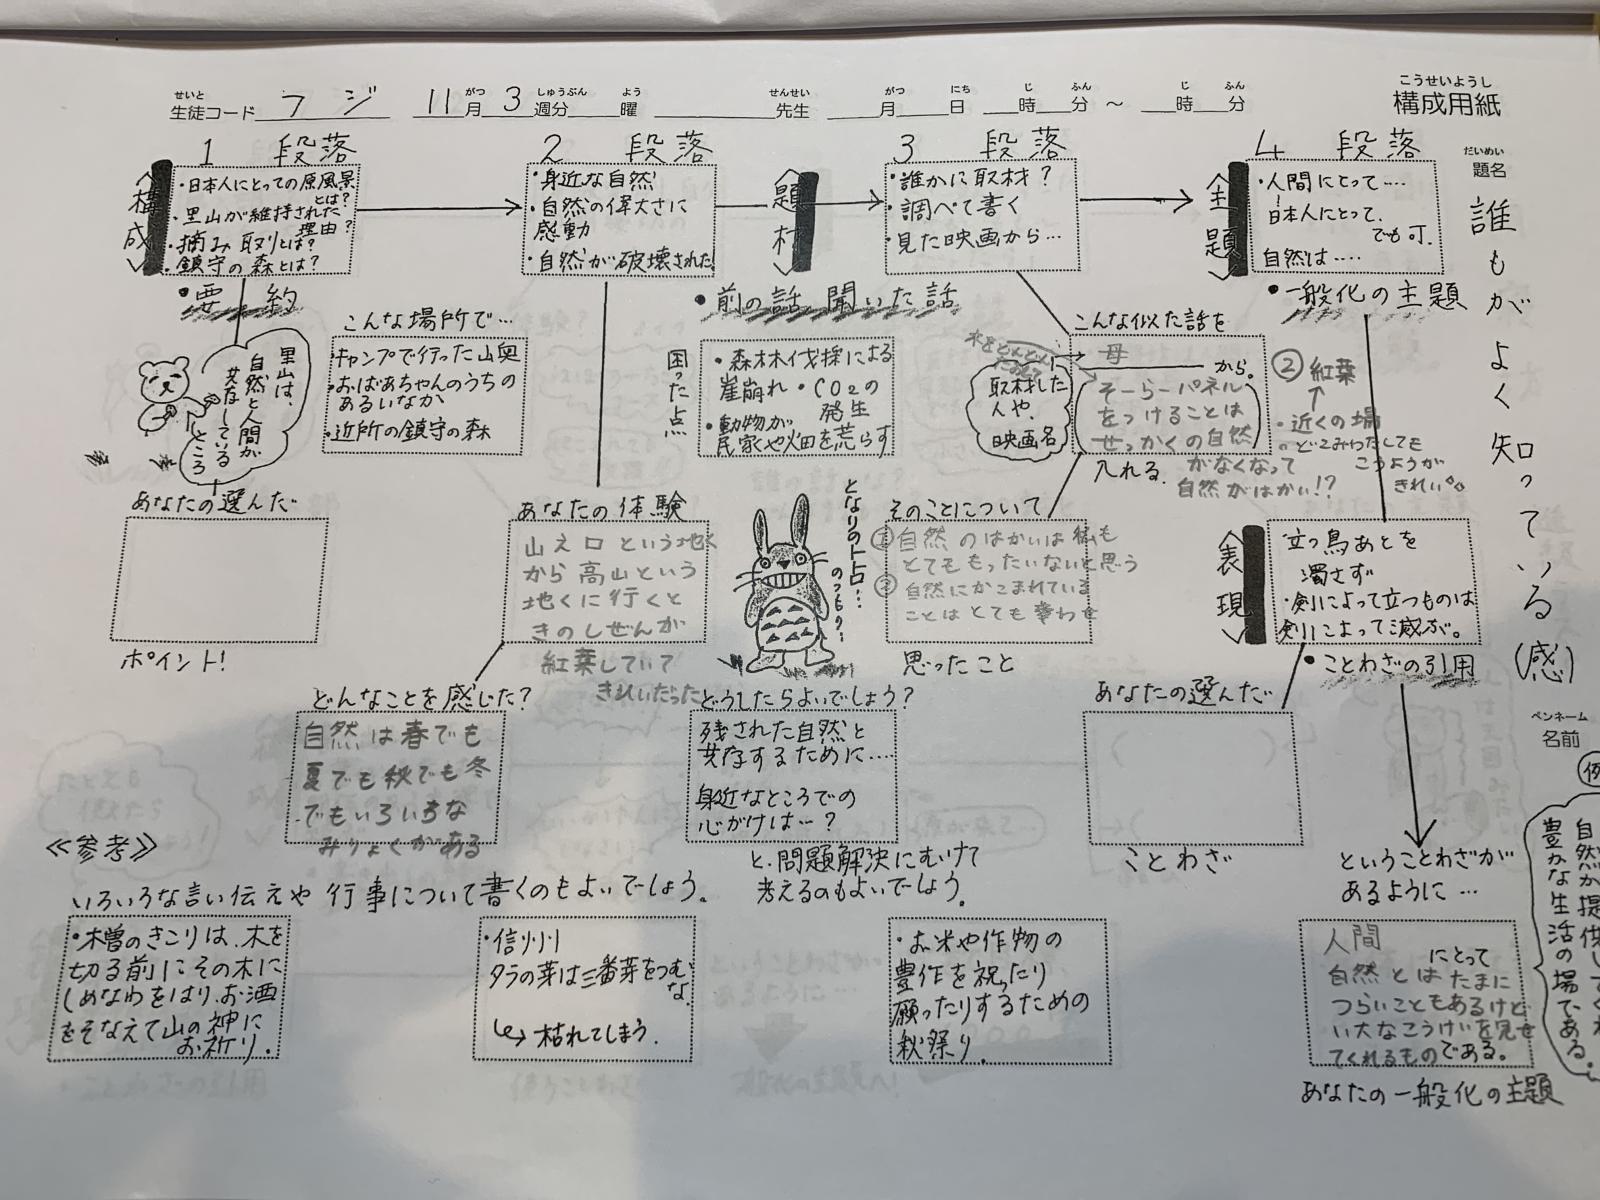 こうせいようし
構成用紙
せいと
生徒コード フジ 11月3週分 曜 先生 月 日 時 分 ～ 時 分
がつ しゅうぶん よう せんせい がつ にち じ ふん じ ふん
だいめい
題名
誰もがよく知っている(感)
ペンネーム
名前
1 段落
〈構成〉
・日本人にとっての原風景とは?
・里山が維持された理由?
・摘み取りとは?
・鎮守の森とは?
・要約
里山は、
自然と人間が
共存している
ところ
あなたの選んだ
ポイント!
2 段落
・身近な自然
・自然の偉大さに
感動
・自然が破壊された!
こんな場所で…
・キャンプで行った山奥
・おばあちゃんのうちの
あるいなか
・近所の鎮守の森
あなたの体験
山え口という地く
から高山という
地くに行くと
きのしぜんが
紅葉していて
きれいだった
どんなことを感じた?
自然は春でも
夏でも秋でも冬
でもいろいろな
みりょくがある
〈題材〉
・前の話 聞いた話
3 段落
・誰かに取材?
・調べて書く
・見た映画から…
困った点
・森林伐採による
崖崩れ・CO2の
発生
・動物が
民家や畑を荒らす
こんな似た話を
母
から。
そーらーパネル
をつけることは
せっかくの自然
がなくなって
自然がはかい!?
入れる。
取材した
人や、
映画名
となりのトトロ…
のつもり?…
そのことについて
① 自然のはかいは私も
とてももったいないと思う
② 自然にかこまれている
ことはとても幸わせ
思ったこと
どうしたらよいでしょう?
残された自然と
共存するために…
身近なところでの
心がけは…?
と、問題解決にむけて
考えるのもよいでしょう。
4 段落
〈主題〉
・人間にとって…
日本人にとって、
でも可.
自然は…
・一般化の主題
② 紅葉
・近くの場
どこみわたしても
こうようが
きれい。
〈表現〉
立つ鳥あとを
濁さず
・剣によって立つものは
剣によって滅ぶ。
・ことわざの引用
あなたの選んだ
ことわざ
ということわざが
あるように…
人間 にとって
自然とはたまに
つらいこともあるけど
い大なこうけいを見せ
てくれるものである。
あなたの一般化の主題
例
豊かな生活の場である。
≪参考≫
いろいろな言い伝えや行事について書くのもよいでしょう。
・木曽のきこりは、木を
切る前にその木に
しめなわをはり、お酒
をそなえて山の神に
お祈り.
・信州
タラの芽は三番芽をつむ
な.
↳ 枯れてしまう.
・お米や作物の
豊作を祝ったり
願ったりするための
秋祭り.